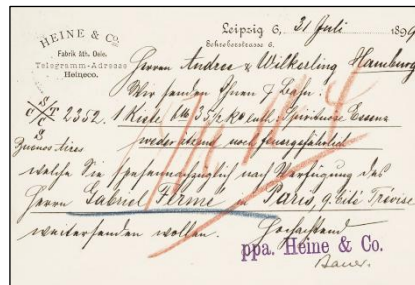 HEINE & Co.
Fabrik äth. Oele.
Telegramm-Adresse
Heineco.
Leipzig 6, 31 Juli 1899
Schreberstrasse 6.
Herren Andreu & Wilkerling Hamburg
Wir senden Ihnen p. Bahn.
2352. 1 Kiste 35 Spirituose Essenz
Buenos Aires weder ätzend noch feuergefährlich
welche Sie nach Verfügung des
Herrn Gabriel Ferme Paris, 9. Cité Trévise
weitersenden wollen. Hochachtend
ppa. Heine & Co.
Bauer.